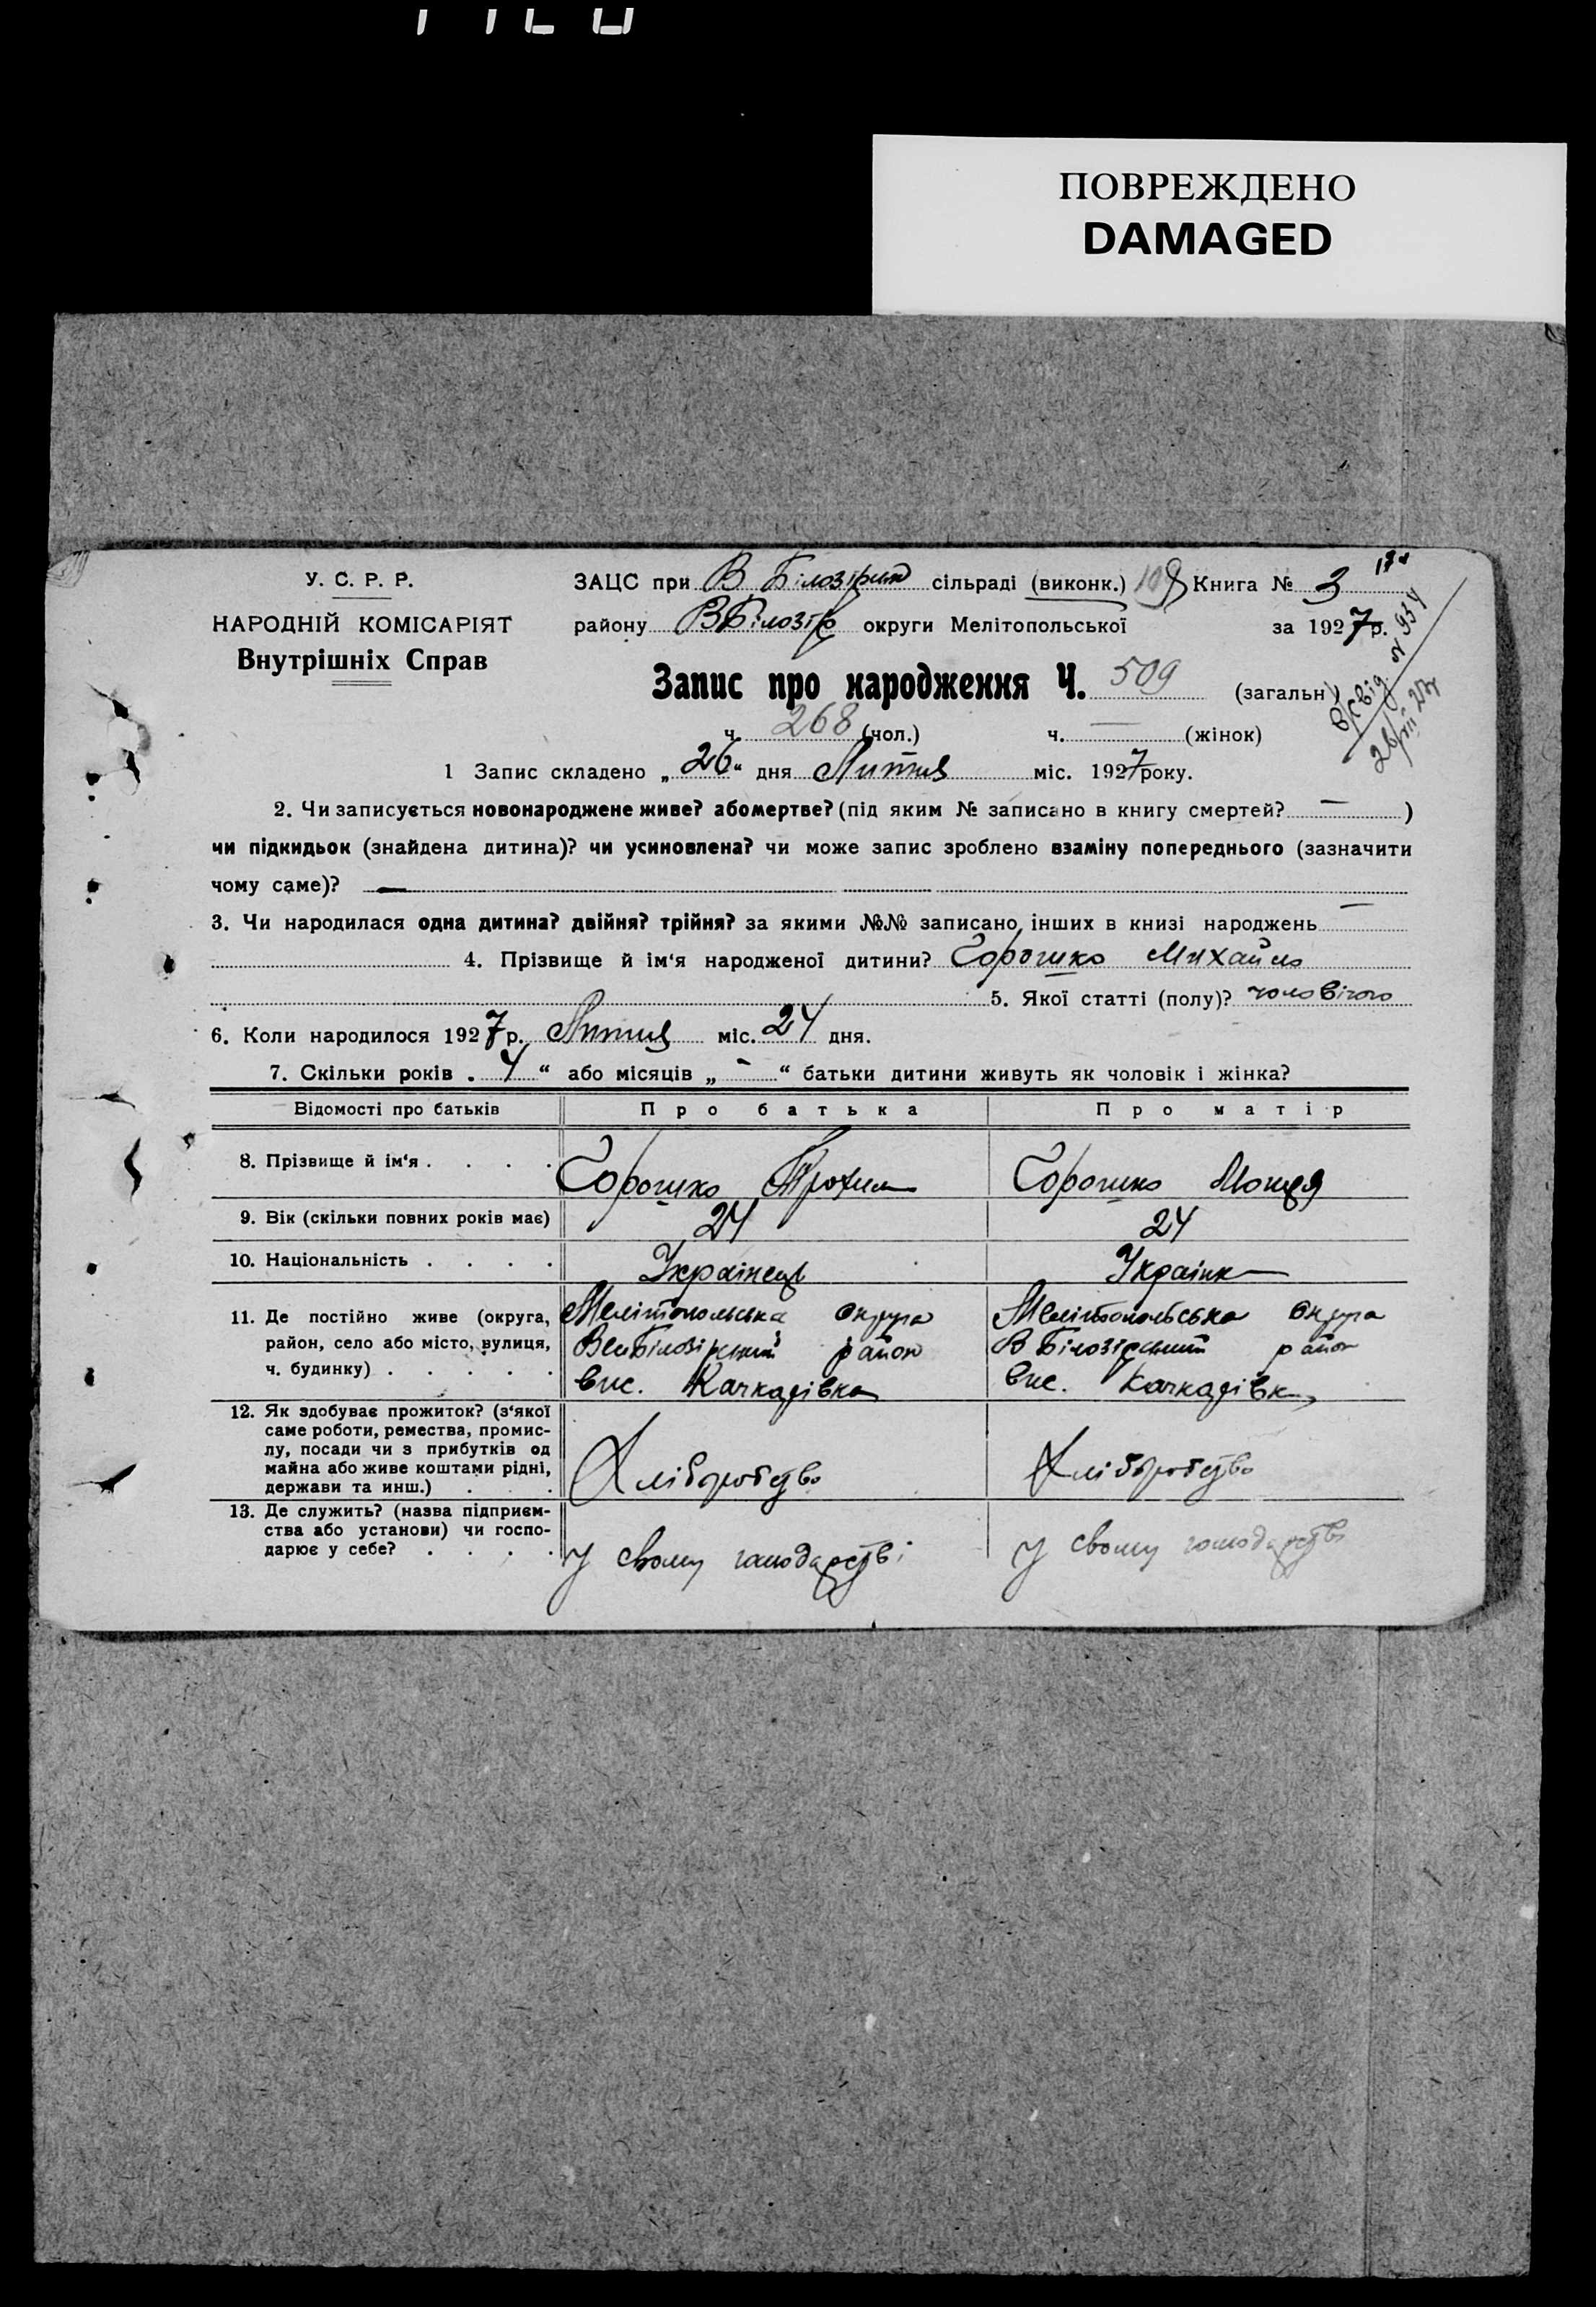 ПОВРЕЖДЕНО
DAMAGED
У. С. Р. Р.
НАРОДНІЙ КОМІСАРІЯТ
Внутрішніх Справ
ЗАЦС при В Білозірск сільраді (виконк.) 109 Книга № 3
району ВБілозір округи Мелітопольської за 1927р.
Запис про народження Ч. 509 (загальн)
ч. 268 (чол.) ч. — (жінок)
1 Запис складено „26“ дня Лютня міс. 1927року.
2. Чи записується новонароджене живе? або мертве? (під яким № записано в книгу смертей? — )
чи підкидьок (знайдена дитина)? чи усиновлена? чи може запис зроблено взаміну попереднього (зазначити
чому саме)? —
3. Чи народилася одна дитина? двійня? трійня? за якими №№ записано інших в книзі народжень —
4. Прізвище й ім‘я народженої дитини? Горошко Михайло
5. Якої статті (полу)? чоловічого
6. Коли народилося 1927р. Лютня міс. 24 дня.
7. Скільки років „4“ або місяців „-“ батьки дитини живуть як чоловік і жінка?
Відомості про батьків Про батька Про матір
8. Прізвище й ім‘я . . . . Горошко Трохим Горошко Мотря
9. Вік (скільки повних років має) 24 24
10. Національність . . . . Українець Українк
11. Де постійно живе (округа, Мелітопольська округа Мелітопольська округа
район, село або місто, вулиця, ВелБілозірський район В Білозірський район
ч. будинку) . . . . . вис. Качкарівка вис. Качкарівк
12. Як здобуває прожиток? (з‘якої
саме роботи, ремества, промис-
лу, посади чи з прибутків од
майна або живе коштами рідні, Хліборобство Хліборобство
держави та инш.) . . .
13. Де служить? (назва підприєм-
ства або установи) чи госпо-
дарює у себе? . . . . У свому господарстві У свому господарстві